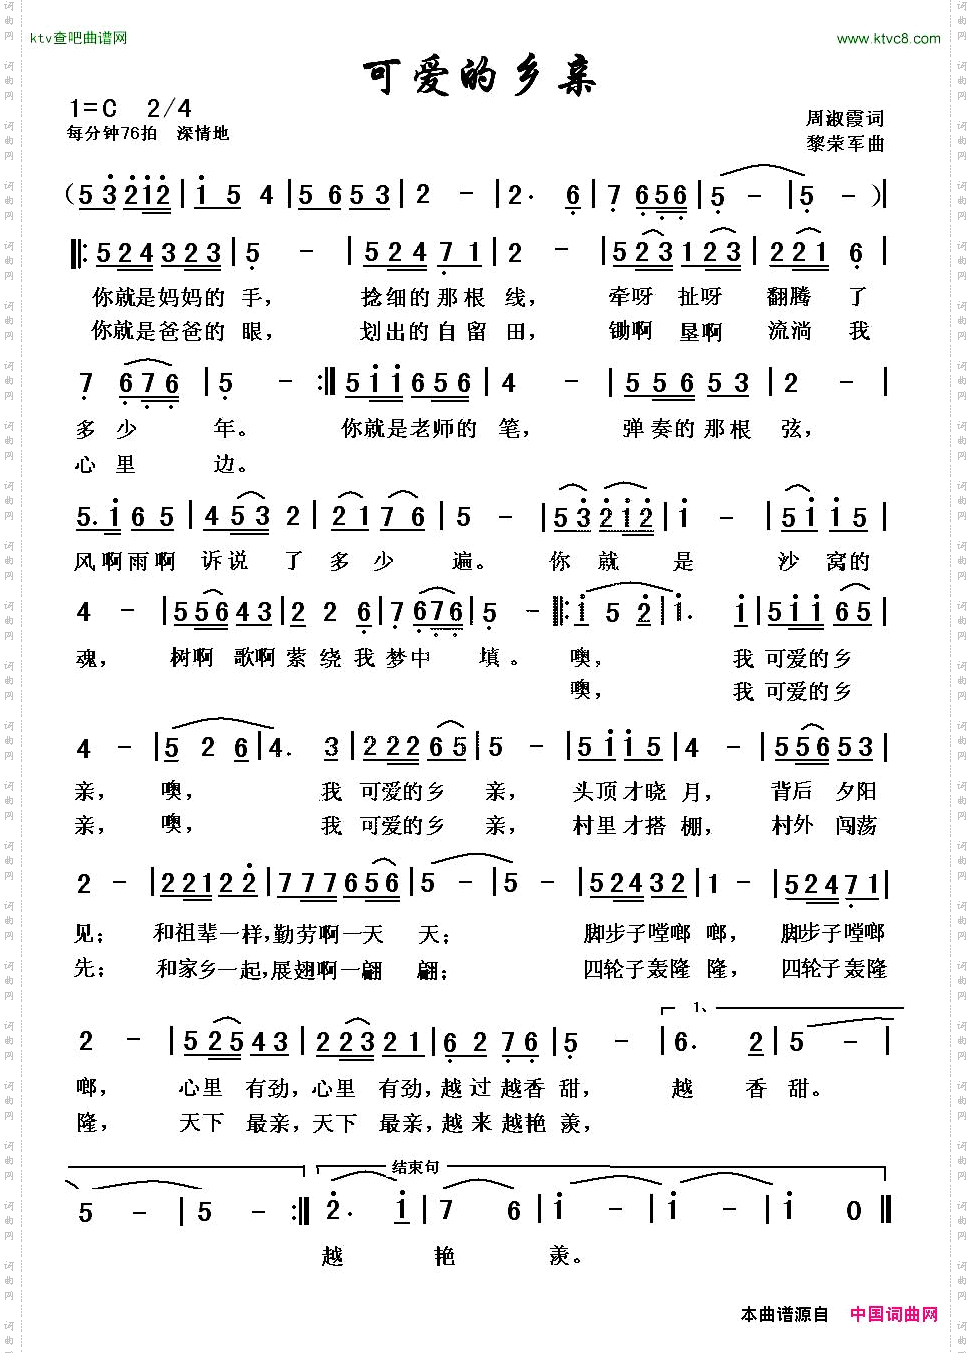 ktv查吧曲谱网 www.ktvc8.com
可爱的乡亲
1=C 2/4
每分钟76拍 深情地
周淑霞词
黎荣军曲
(5 3 2 1 2 | 1 5 4 | 5 6 5 3 | 2 - | 2. 6 | 7 6 5 6 | 5 - | 5 - )|
‖: 5 2 4 3 2 3 | 5 - | 5 2 4 7 1 | 2 - | 5 2 3 1 2 3 | 2 2 1 6 |
你就是妈妈的 手, 捻细的那根 线, 牵呀 扯呀 翻腾 了
你就是爸爸的 眼, 划出的自留 田, 锄啊 垦啊 流淌 我
7 6 7 6 | 5 - :‖ 5 1 1 6 5 6 | 4 - | 5 5 6 5 3 | 2 - |
多 少 年。 你就是老师的 笔, 弹奏的那根 弦,
心 里 边。
5. 1 6 5 | 4 5 3 2 | 2 1 7 6 | 5 - | 5 3 2 1 2 | 1 - | 5 1 1 5 |
风啊雨啊 诉说 了 多少 遍。 你 就 是 沙 窝的
4 - | 5 5 6 4 3 | 2 2 6 | 7 6 7 6 | 5 - ‖: 1 5 2 | 1. 1 | 5 1 1 6 5 |
魂, 树啊 歌啊 萦 绕 我 梦中 填。 噢, 我 可爱的乡
噢, 我 可爱的乡
4 - | 5 2 6 | 4. 3 | 2 2 2 6 5 | 5 - | 5 1 1 5 | 4 - | 5 5 6 5 3 |
亲, 噢, 我 可爱的乡 亲, 头顶才晓 月, 背后 夕阳
亲, 噢, 我 可爱的乡 亲, 村里才搭 棚, 村外 闯荡
2 - | 2 2 1 2 2 | 7 7 7 6 5 6 | 5 - | 5 - | 5 2 4 3 2 | 1 - | 5 2 4 7 1 |
见; 和祖辈一样,勤劳啊一天 天; 脚步子嘡啷 啷, 脚步子嘡啷
先; 和家乡一起,展翅啊一翩 翩; 四轮子轰隆 隆, 四轮子轰隆
1、
2 - | 5 2 5 4 3 | 2 2 3 2 1 | 6 2 7 6 | 5 - | 6. 2 | 5 - |
啷, 心里 有劲,心里 有劲,越过越香甜, 越 香 甜。
隆, 天下 最亲,天下 最亲,越来越艳 羡,
结束句
5 - | 5 - :‖ 2. 1 | 7 6 | 1 - | 1 - | 1 - | 1 0 ‖
越 艳 羡。
本曲谱源自 中国词曲网